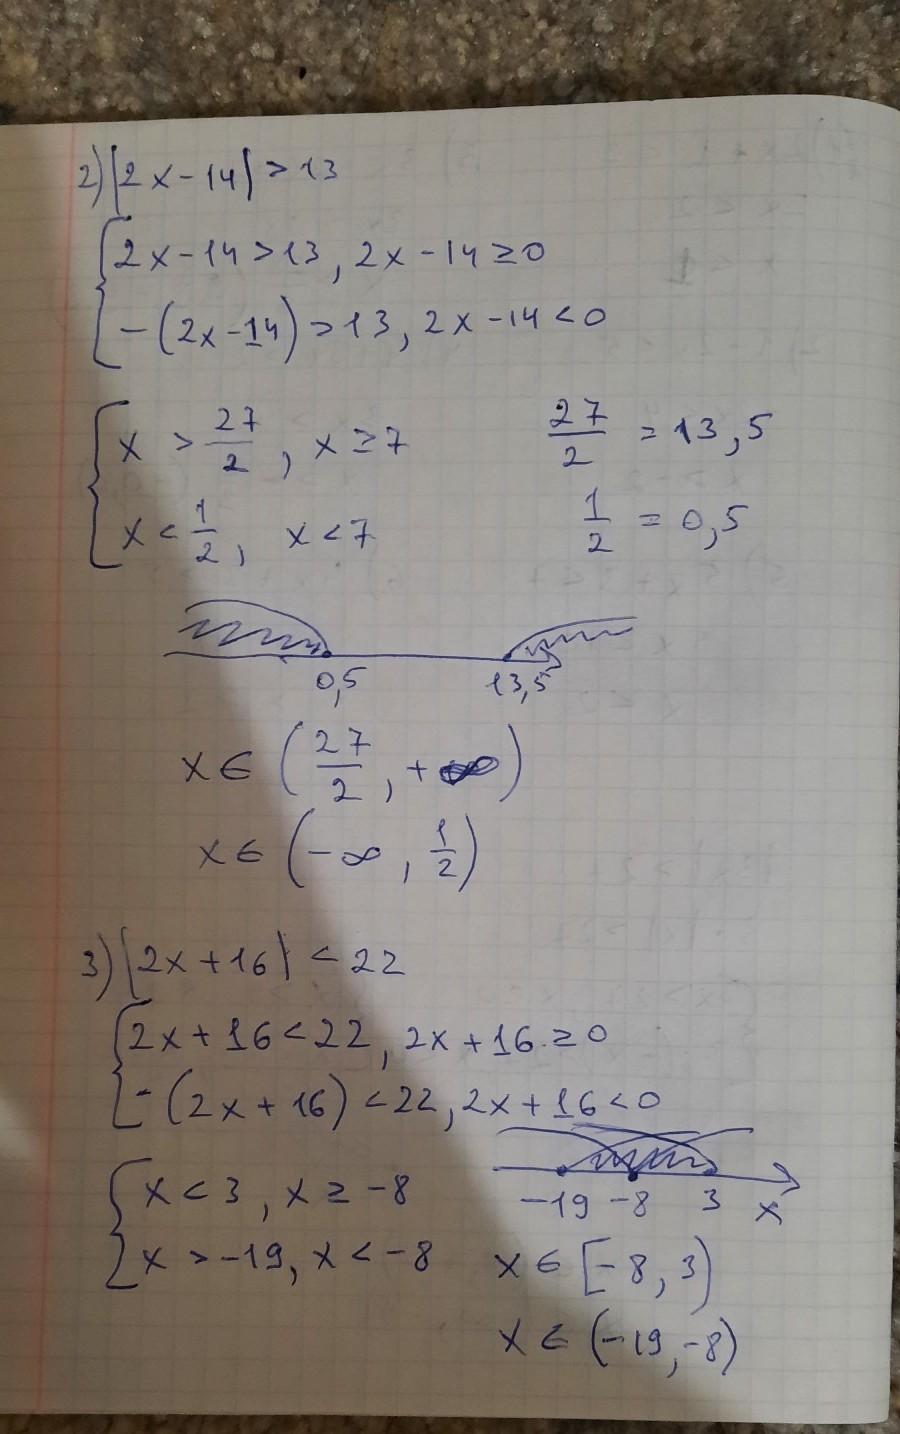 2) |2x-14| > 13
2x-14 > 13, 2x-14 ≥ 0
-(2x-14) > 13, 2x-14 < 0
x > 27/2, x ≥ 7
27/2 = 13,5
x < 1/2, x < 7
1/2 = 0,5
0,5 13,5
x ∈ (27/2, +∞)
x ∈ (-∞, 1/2)
3) |2x+16| < 22
2x+16 < 22, 2x+16 ≥ 0
-(2x+16) < 22, 2x+16 < 0
x < 3, x ≥ -8
-19 -8 3 x
x > -19, x < -8
x ∈ [-8, 3)
x ∈ (-19, -8)